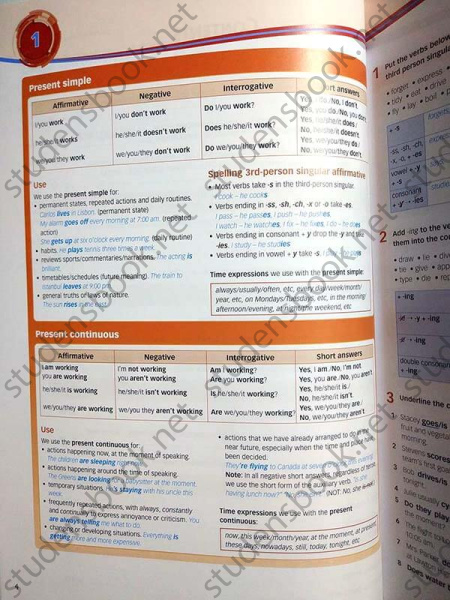 1
Present simple
Affirmative Negative Interrogative Short answers
I/you work I/you don't work Do I/you work? Yes, I/you do./No, I don't.
he/she/it works he/she/it doesn't work Does he/she/it work? Yes, he/she/it does./
No, he/she/it doesn't.
we/you/they work we/you/they don't work Do we/you/they work? Yes, we/you/they do./
No, we/you/they don't.
Use
We use the present simple for:
• permanent states, repeated actions and daily routines.
Carlo lives in Lisbon. (permanent state)
My alarm goes off every morning at 7:00 am. (repeated
action)
She gets up at six o'clock every morning. (daily routine)
• habits. He plays tennis three times a week.
• reviews/sports/commentaries/narrations. The acting is
brilliant.
• timetables/schedules (future meaning). The train to
Istanbul leaves at 9:00 pm.
• general truths or laws of nature.
The sun rises in the east.
Spelling 3rd-person singular affirmative
• Most verbs take -s in the third-person singular.
I cook – he cooks
• Verbs ending in -ss, -sh, -ch, -x or -o take -es.
I pass – he passes, I push – he pushes,
I watch – he watches, I fix – he fixes, I do – he does
• Verbs ending in consonant + y drop the -y and take
-ies. I study – he studies
• Verbs ending in vowel + y take -s.
Time expressions we use with the present simple:
always/usually/often, etc, every day/week/month/
year, etc, on Mondays/Tuesdays, etc, in the morning/
afternoon/evening, at night/the weekend, etc
Present continuous
Affirmative Negative Interrogative Short answers
I am working I'm not working Am I working? Yes, I am./No, I'm not.
you are working you aren't working Are you working? Yes, you are./No, you aren't.
he/she/it is working he/she/it isn't working Is he/she/it working? Yes, he/she/it is./
No, he/she/it isn't.
we/you/they are working we/you/they aren't working Are we/you/they working? Yes, we/you/they are./
No, we/you/they aren't.
Use
We use the present continuous for:
• actions happening now, at the moment of speaking.
The children are sleeping
• actions happening around the time of speaking.
The Greens are looking for a babysitter at the moment.
• temporary situations. is staying with his uncle this
week.
• frequently repeated actions, with always, constantly
and continually to express annoyance or criticism. You
are always telling me what to do.
• changing or developing situations. Everything is
getting more and more expensive.
• actions that we have already arranged to do in the
near future, especially when the time has
been decided.
They're flying to Canada at seven
Note: In all negative short answers, regardless of tense,
we use the short form of the auxiliary verb. "Is she
having lunch now?" (NOT: No, she is not.)
Time expressions we use with the present
continuous:
now, this week/month/year, at the moment, at present,
these days, nowadays, still, today, tonight, etc
1 Put the verbs below
third person singular
• forget • express •
• tidy • eat • drive
• fly • lay • boil
+ -s
-ss, -sh, -ch,
-x, -o, + -es
vowel + y
+ -s
2 Add -ing to the ve
them into the co
• draw • lie
• tie • give
• type • die
+ -ing
-ie → -y + -ing
double consonant
+ -ing
3 Underline the c
1 Stacey goes/is
fruit and veget
morning.
2 Stevens scores
team's first goa
3 Rob drives/is
4
5 Do they play
the moment?
6 The flight
7 Mrs
8 Does water
studensbook.net